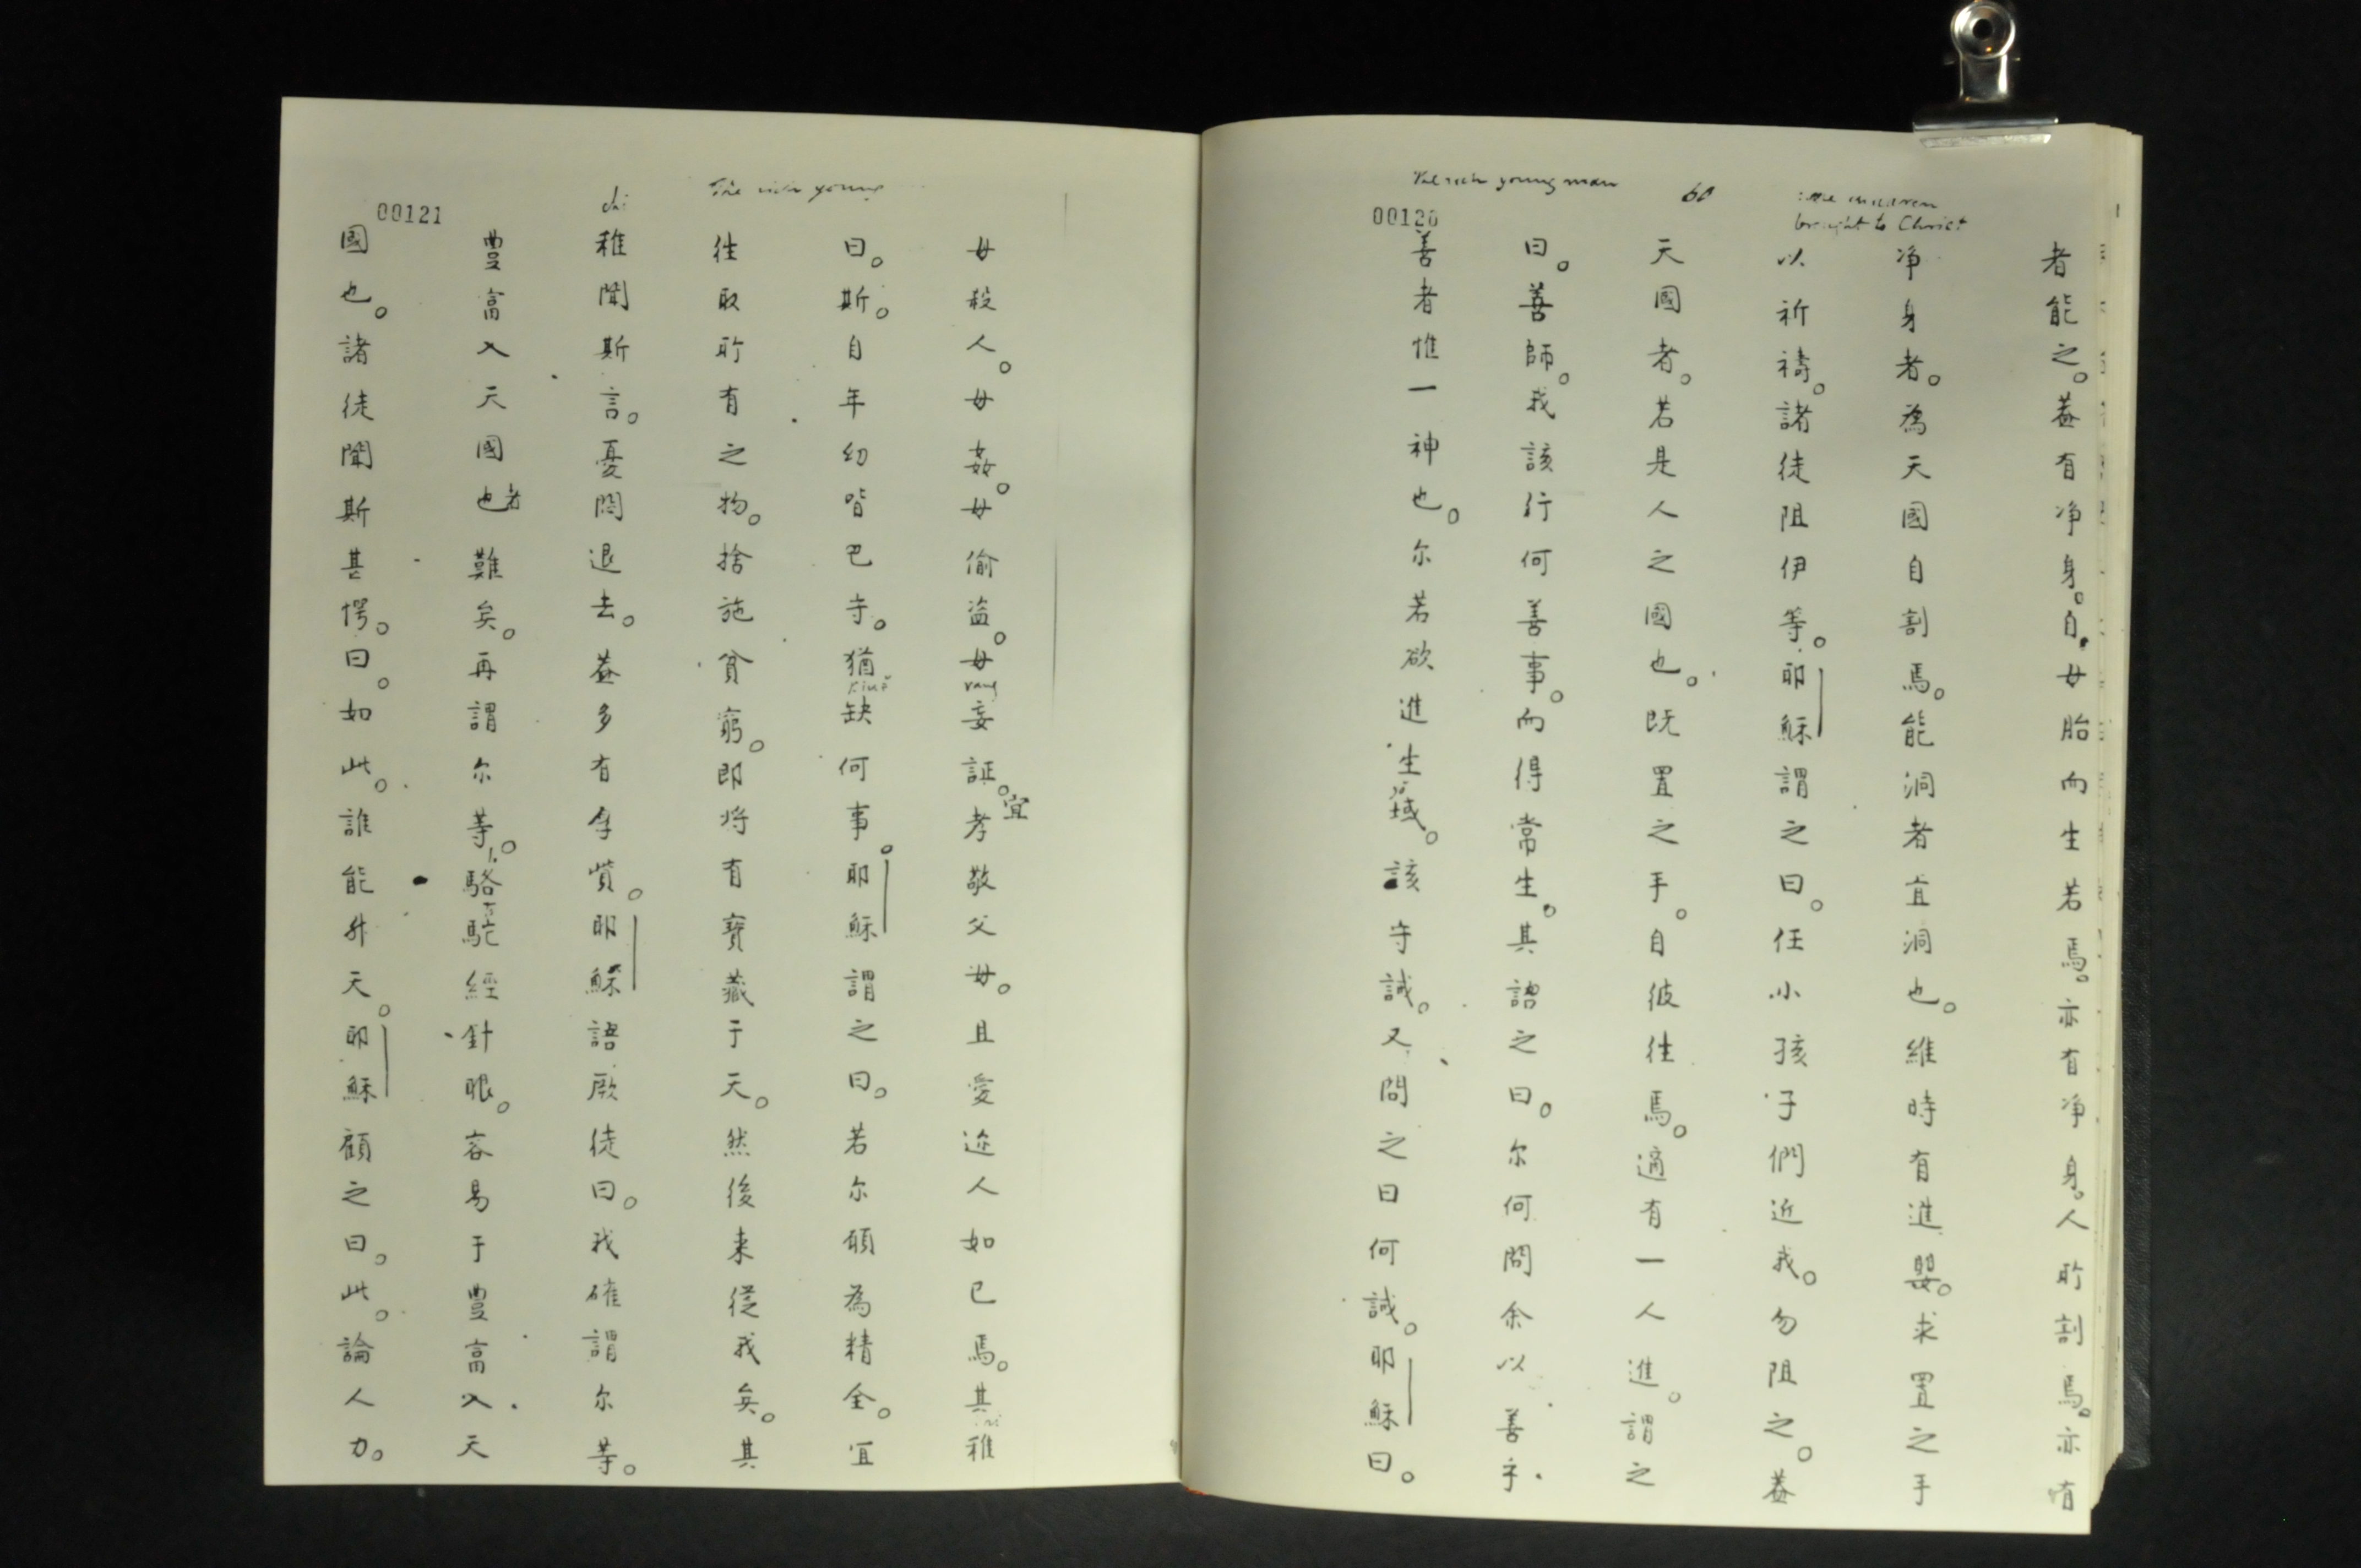 little children
brought to Christ
60
The rich young man
00120
者能之。葢有净身。自母胎而生若焉。亦有净身。人所割焉。亦有
净身者。為天國自割焉。能洞者宜洞也。維時有進嬰。求置之手
以祈禱。諸徒阻伊等。耶穌謂之曰。任小孩子們近我。勿阻之。葢
天國者。若是人之國也。既置之手。自彼往焉。適有一人進。謂之
曰。善師。我該行何善事。而得常生。其謂之曰。尔何問余以善乎
善者惟一神也。尔若欲進生域。該守誡。又問之曰何誡。耶穌曰。
The rich young
00121
毋殺人。毋姦。毋偷盗。毋妄証。宜孝敬父母。且愛迩人如已焉。其稚
曰。斯。自年幼皆巴守。猶缺何事。耶穌謂之曰。若尔願為精全。宜
往取所有之物。捨施貧窮。即将有寶藏于天。然後来從我矣。其
稚聞斯言。憂悶退去。葢多有拿貲。耶穌語厥徒曰。我確謂尔等。
豊富入天國也者難矣。再謂尔等。駱駝經針眼。容易于豊富入天
國也。諸徒聞斯甚愕。曰。如此。誰能升天。耶穌顧之曰。此。論人力。